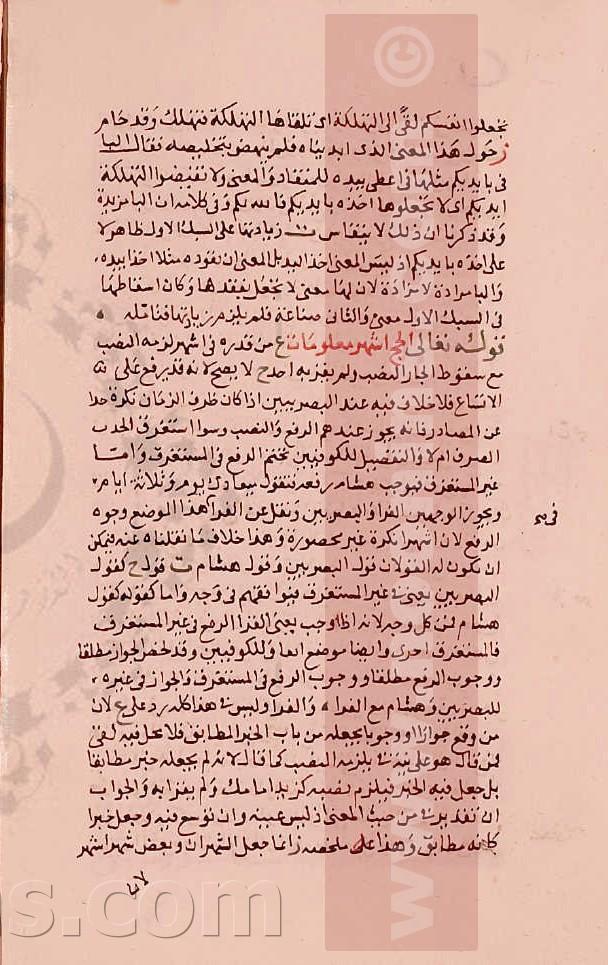 تجعلوا انفسكم لقى الى التهلكة اى تلقاها التهلكة فتهلك وقد حام
ز حول هذا المعنى الذى ابديناه فلم ينهض بتخليصه فقال البا
فى بايديكم مثلها فى اعطى بيده للمنقاد والمعنى ولا تقبضوا التهلكة
ايديكم اى لا تجعلوها اخذة بايديكم مالكة لكم وفى كلامه ان البا مزيدة
وقد ذكرنا ان ذلك لا ينقاس ت زيادتها على السبك الاول ظاهر لا
على اخذة بايديكم اذ ليس المعنى اخذ اليد بل المعنى ان تقوده مثلا اخذا بيده
والبا مرادة لان لها معنى لا تجعل بفقدها وكان اسقاطها
فى السبك الاول معنى والثانى صناعة فلم يلزم زيادتها فتامله
قوله تعالى الحج اشهر معلومات ع من قدره فى اشهر لزمه النصب
مع سقوط الجار النصب ولم يقرء به احد ح لا يصح لانه قد يرفع على
الاتساع فلا خلاف فيه عند البصريين اذا كان ظرف الزمان نكرة خبرا
عن المصادر فانه يجوز عندهم الرفع والنصب وسوا استغرق الحدث
الصرف ام لا والتفصيل للكوفيين تحتم الرفع فى المستغرق واما
غير المستغرق فيوجب هشام رفعه فتقول ميعادك يوم وثلاثة ايام
ويجوز الوجهين الفرا والبصريين ونقل عن الفرا هذا الموضع وجوه
الرفع لان اشهرا نكرة غير محصورة وهذا خلاف ما نقلناه عنه فيمكن
ان تكون له القولان قول البصريين وقول هشام ت قول ح كقول
البصريين يعنى فى غير المستغرق فيوافقهم فى وجه واما كقوله كقول
هشام فمن كل وجه لانه اذا وجب يعنى الفرا الرفع فى غير المستغرق
فالمستغرق احرى وايضا موضع اتفاق للكوفيين وقد تحصل الجواز مطلقا
ووجوب الرفع مطلقا ووجوب الرفع فى المستغرق والجواز فى غيره
للبصريين وهشام مع الفرا والفرا وليس هذا كله رد على ع لان
من رفع جوازا او وجوبا يجعله من باب الخبر المطابق فلا محل فيه لفى
فمن قال هو على يلزمه النصب كما قال لانه لم يجعله خبر مطابقا
بل جعل فيه الخبر فيلزم نصبه كزيد امامك ولم يقرا به والجواب
ان تقدير من حيث المعنى اذ ليس عينه وان توسع فيه وجعل خبرا
كانه مطابق وهذا على ملخصه زاعما جعل الشهران وبعض شهر اشهر